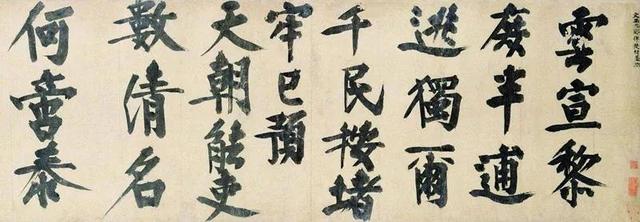 雲宣黎
庶半逋
逃獨爾
千民按堵
牢已領
天朝能吏
數清名
何啻泰